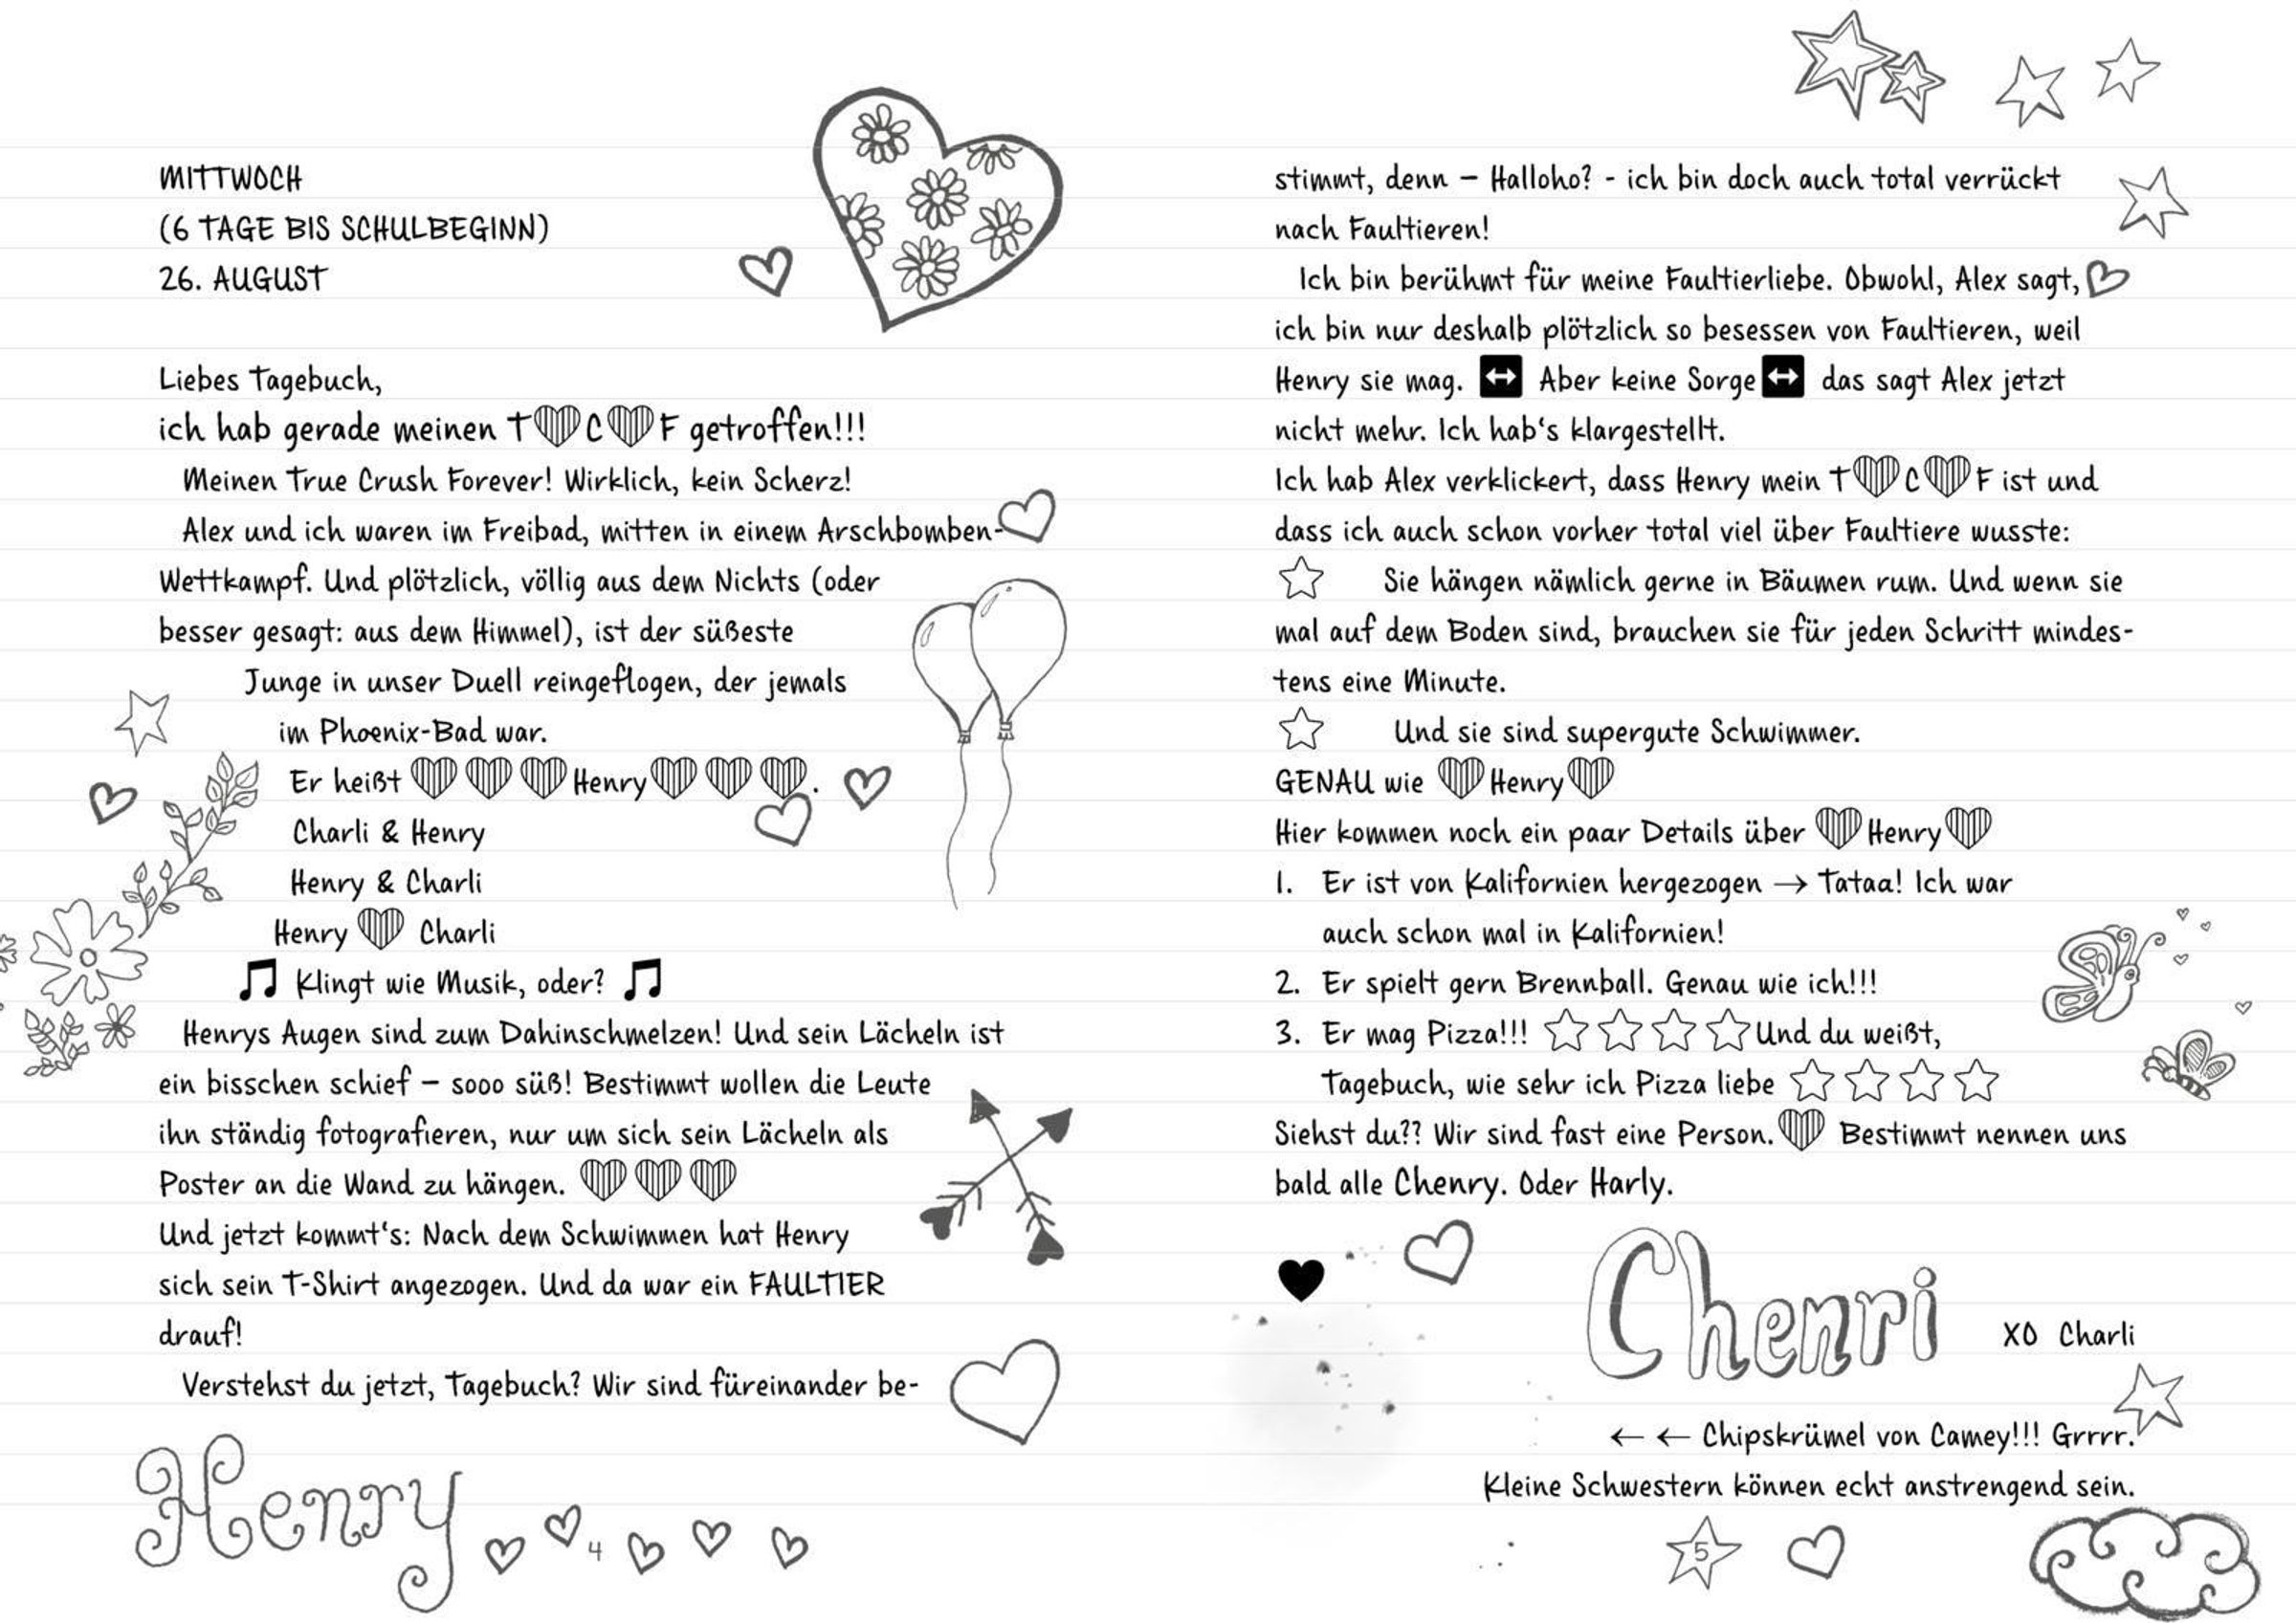 MITTWOCH
(6 TAGE BIS SCHULBEGINN)
26. AUGUST
Liebes Tagebuch,
ich hab gerade meinen T♥C♥F getroffen!!!
Meinen True Crush Forever! Wirklich, kein Scherz!
Alex und ich waren im Freibad, mitten in einem Arschbomben-
Wettkampf. Und plötzlich, völlig aus dem Nichts (oder
besser gesagt: aus dem Himmel), ist der süßeste
Junge in unser Duell reingeflogen, der jemals
im Phoenix-Bad war.
Er heißt ♥♥♥Henry♥♥♥.
Charli & Henry
Henry & Charli
Henry ♥ Charli
♫ Klingt wie Musik, oder? ♫
Henrys Augen sind zum Dahinschmelzen! Und sein Lächeln ist
ein bisschen schief – sooo süß! Bestimmt wollen die Leute
ihn ständig fotografieren, nur um sich sein Lächeln als
Poster an die Wand zu hängen. ♥♥♥
Und jetzt kommt's: Nach dem Schwimmen hat Henry
sich sein T-Shirt angezogen. Und da war ein FAULTIER
drauf!
Verstehst du jetzt, Tagebuch? Wir sind füreinander be-
Henry
4
stimmt, denn – Halloho? - ich bin doch auch total verrückt
nach Faultieren!
Ich bin berühmt für meine Faultierliebe. Obwohl, Alex sagt,
ich bin nur deshalb plötzlich so besessen von Faultieren, weil
Henry sie mag. ↔ Aber keine Sorge ↔ das sagt Alex jetzt
nicht mehr. Ich hab's klargestellt.
Ich hab Alex verklickert, dass Henry mein T♥C♥F ist und
dass ich auch schon vorher total viel über Faultiere wusste:
☆ Sie hängen nämlich gerne in Bäumen rum. Und wenn sie
mal auf dem Boden sind, brauchen sie für jeden Schritt mindes-
tens eine Minute.
☆ Und sie sind supergute Schwimmer.
GENAU wie ♥Henry♥
Hier kommen noch ein paar Details über ♥Henry♥
1. Er ist von Kalifornien hergezogen → Tataa! Ich war
auch schon mal in Kalifornien!
2. Er spielt gern Brennball. Genau wie ich!!!
3. Er mag Pizza!!! ☆☆☆☆Und du weißt,
Tagebuch, wie sehr ich Pizza liebe ☆☆☆☆
Siehst du?? Wir sind fast eine Person.♥ Bestimmt nennen uns
bald alle Chenry. Oder Harly.
Chenri
XO Charli
← ← Chipskrümel von Camey!!! Grrrr.
Kleine Schwestern können echt anstrengend sein.
5